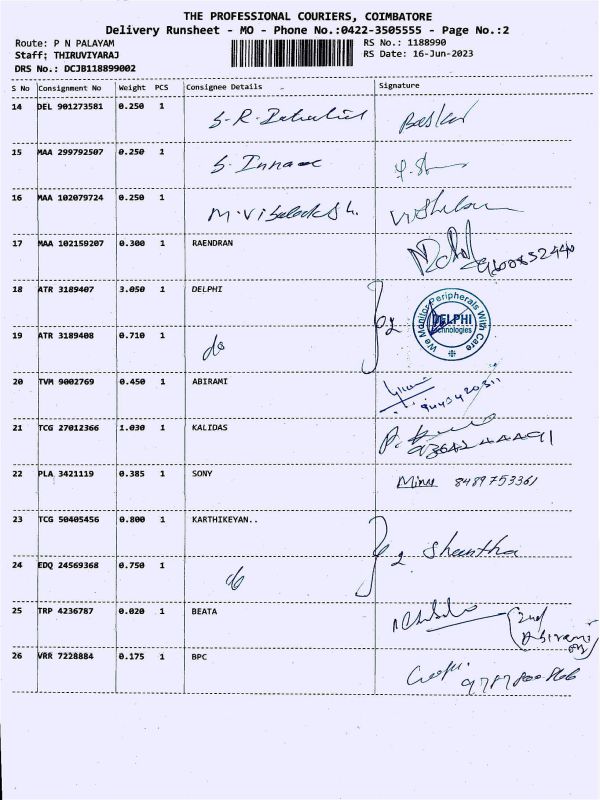 THE PROFESSIONAL COURIERS, COIMBATORE
Delivery Runsheet - MO - Phone No.:0422-3505555 - Page No.:2
Route: P N PALAYAM RS No.: 1188990
Staff: THIRUVIYARAJ RS Date: 16-Jun-2023
DRS No.: DCJB118899002
S No Consignment No Weight PCS Consignee Details Signature
14 DEL 901273581 0.250 1 S.R. Baskar
15 MAA 299792507 0.250 1 S.
16 MAA 102079724 0.250 1 M.
17 MAA 102159207 0.300 1 RAENDRAN
18 ATR 3189407 3.050 1 DELPHI 2 We Monitor Peripherals With Care DELPHI Technologies
19 ATR 3189408 0.710 1 do
20 TVM 9002769 0.450 1 ABIRAMI
21 TCG 27012366 1.030 1 KALIDAS
22 PLA 3421119 0.385 1 SONY Minu 8489753361
23 TCG 50405456 0.800 1 KARTHIKEYAN.. 2 Shantha
24 EDQ 24569368 0.750 1 do
25 TRP 4236787 0.020 1 BEATA 2nd Abirami
26 VRR 7228884 0.175 1 BPC